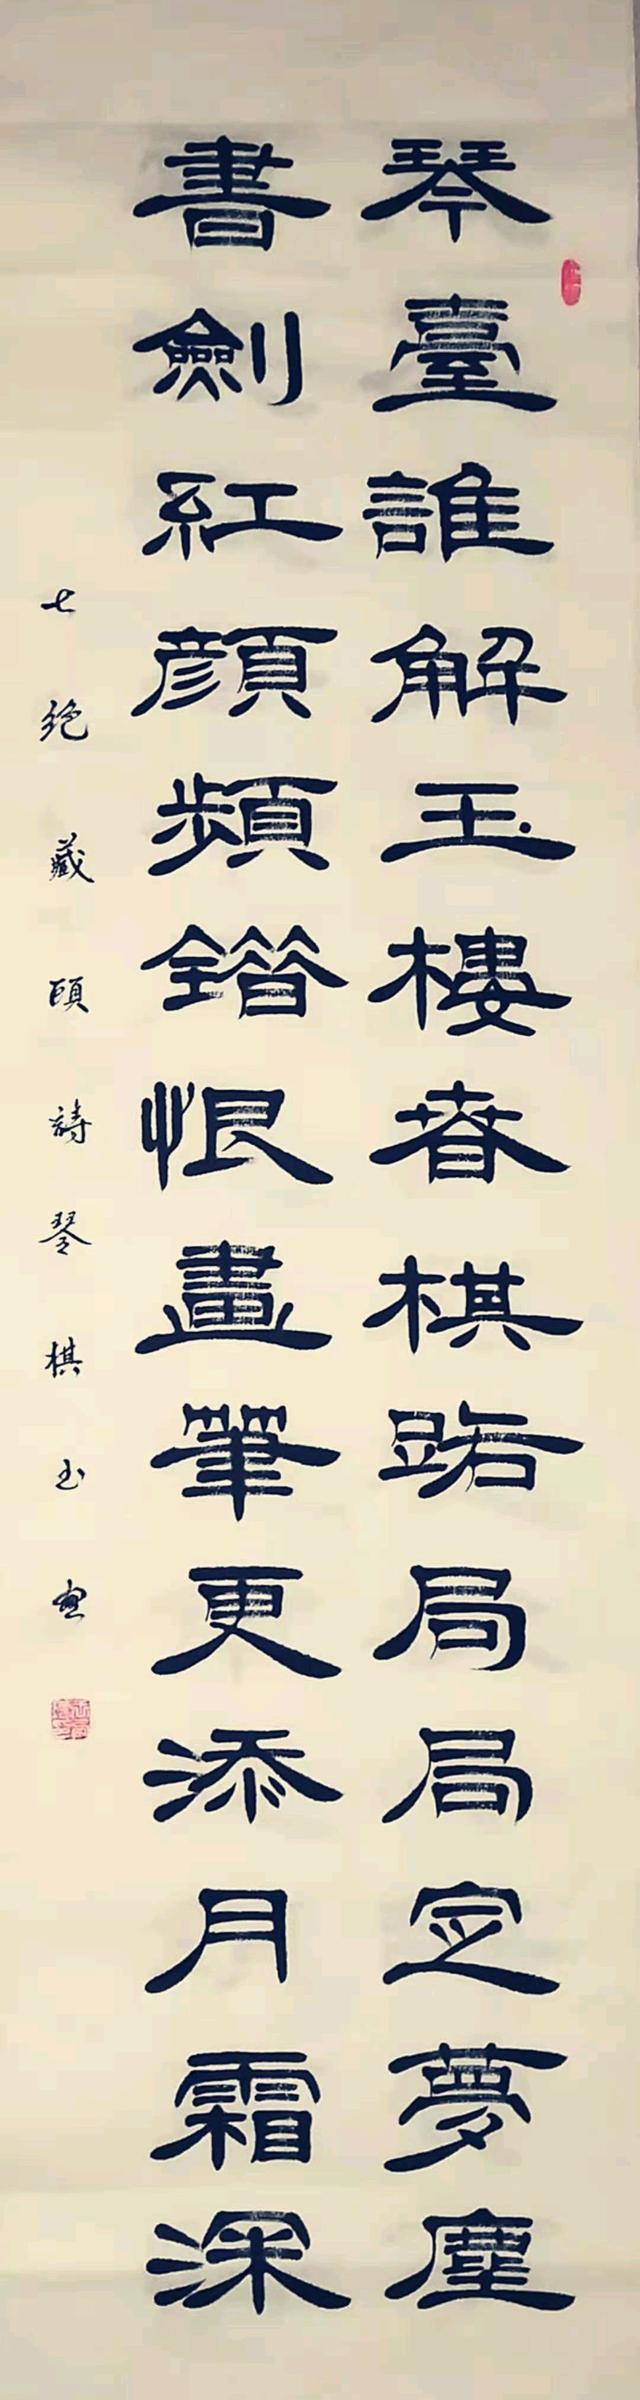 琴臺誰解玉樓春棋路局局定夢塵
書劍紅顏頻錯恨畫筆更添月霜深
七絕藏頭詩琴棋书畫